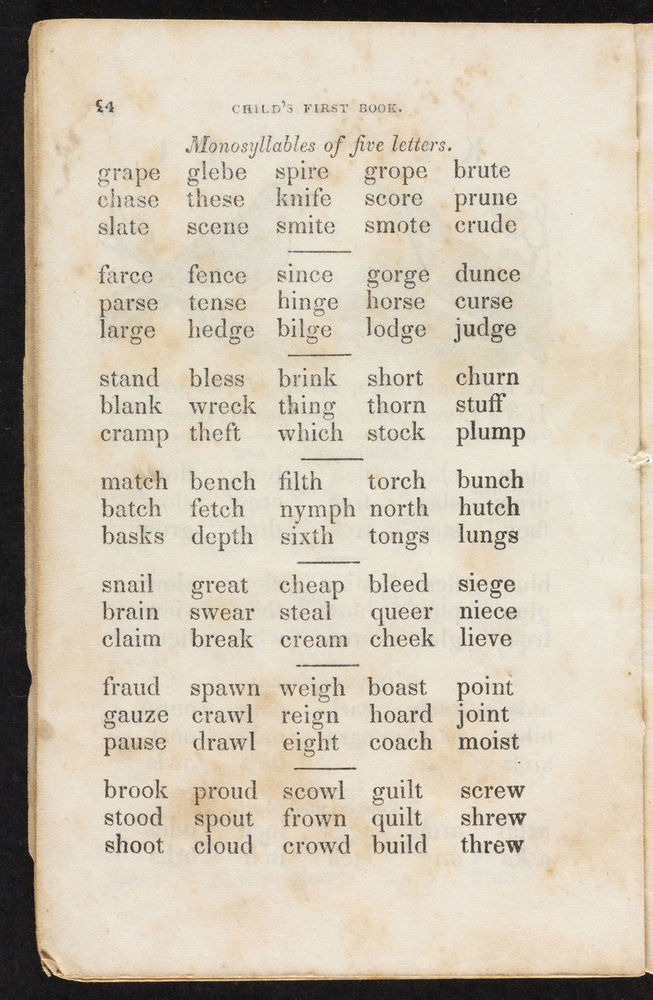 24 CHILD'S FIRST BOOK.
Monosyllables of five letters.
grape glebe spire grope brute
chase these knife score prune
slate scene smite smote crude
farce fence since gorge dunce
parse tense hinge horse curse
large hedge bilge lodge judge
stand bless brink short churn
blank wreck thing thorn stuff
cramp theft which stock plump
match bench filth torch bunch
batch fetch nymph north hutch
basks depth sixth tongs lungs
snail great cheap bleed siege
brain swear steal queer niece
claim break cream cheek lieve
fraud spawn weigh boast point
gauze crawl reign hoard joint
pause drawl eight coach moist
brook proud scowl guilt screw
stood spout frown quilt shrew
shoot cloud crowd build threw